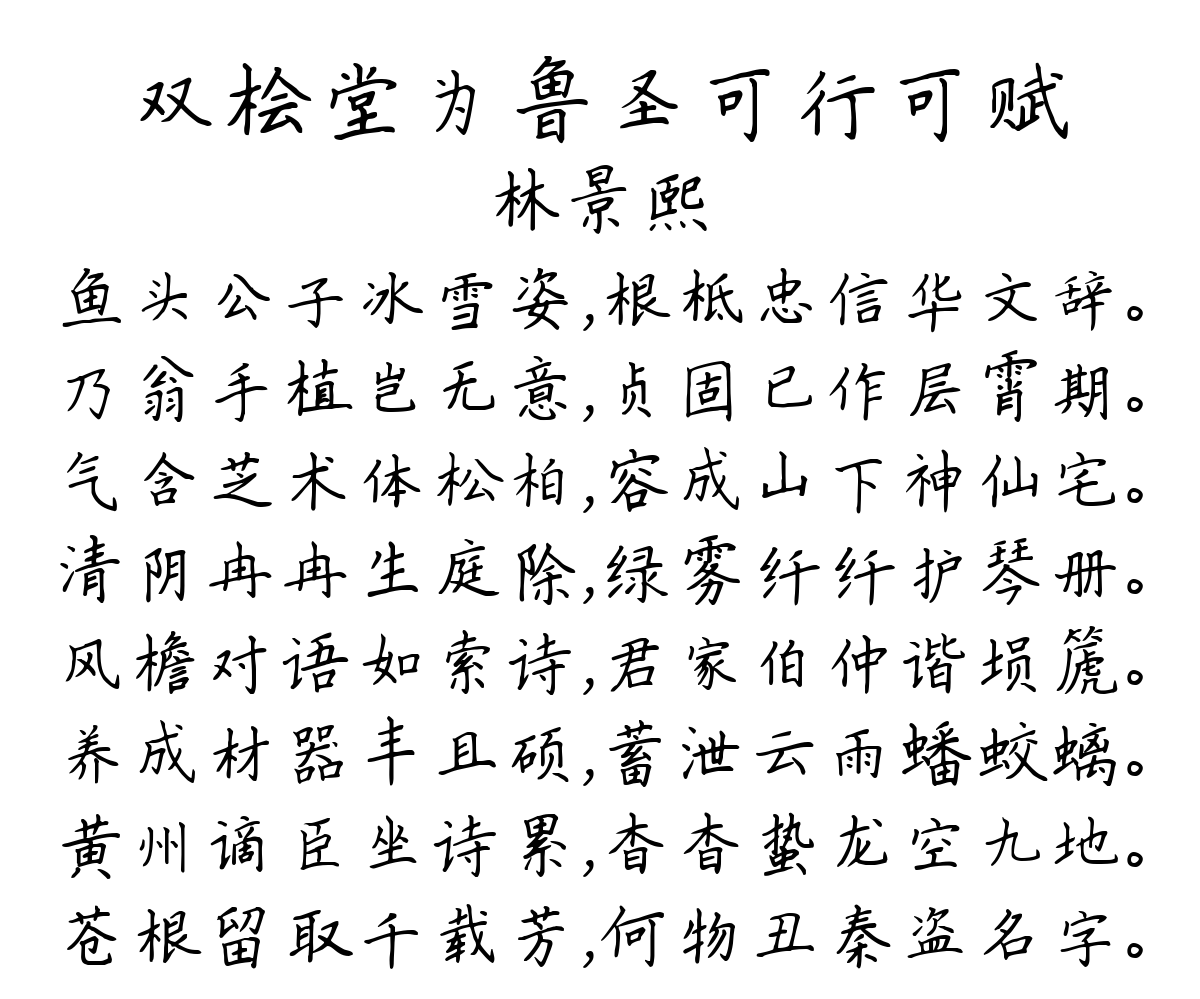 双桧堂为鲁圣可行可赋
林景熙
鱼头公子冰雪姿,根柢忠信华文辞。
乃翁手植岂无意,贞固已作层霄期。
气含芝术体松柏,容成山下神仙宅。
清阴冉冉生庭除,绿雾纤纤护琴册。
风檐对语如索诗,君家伯仲谐埙篪。
养成材器丰且硕,蓄泄云雨蟠蛟螭。
黄州谪臣坐诗累,杳杳蛰龙空九地。
苍根留取千载芳,何物丑秦盗名字。